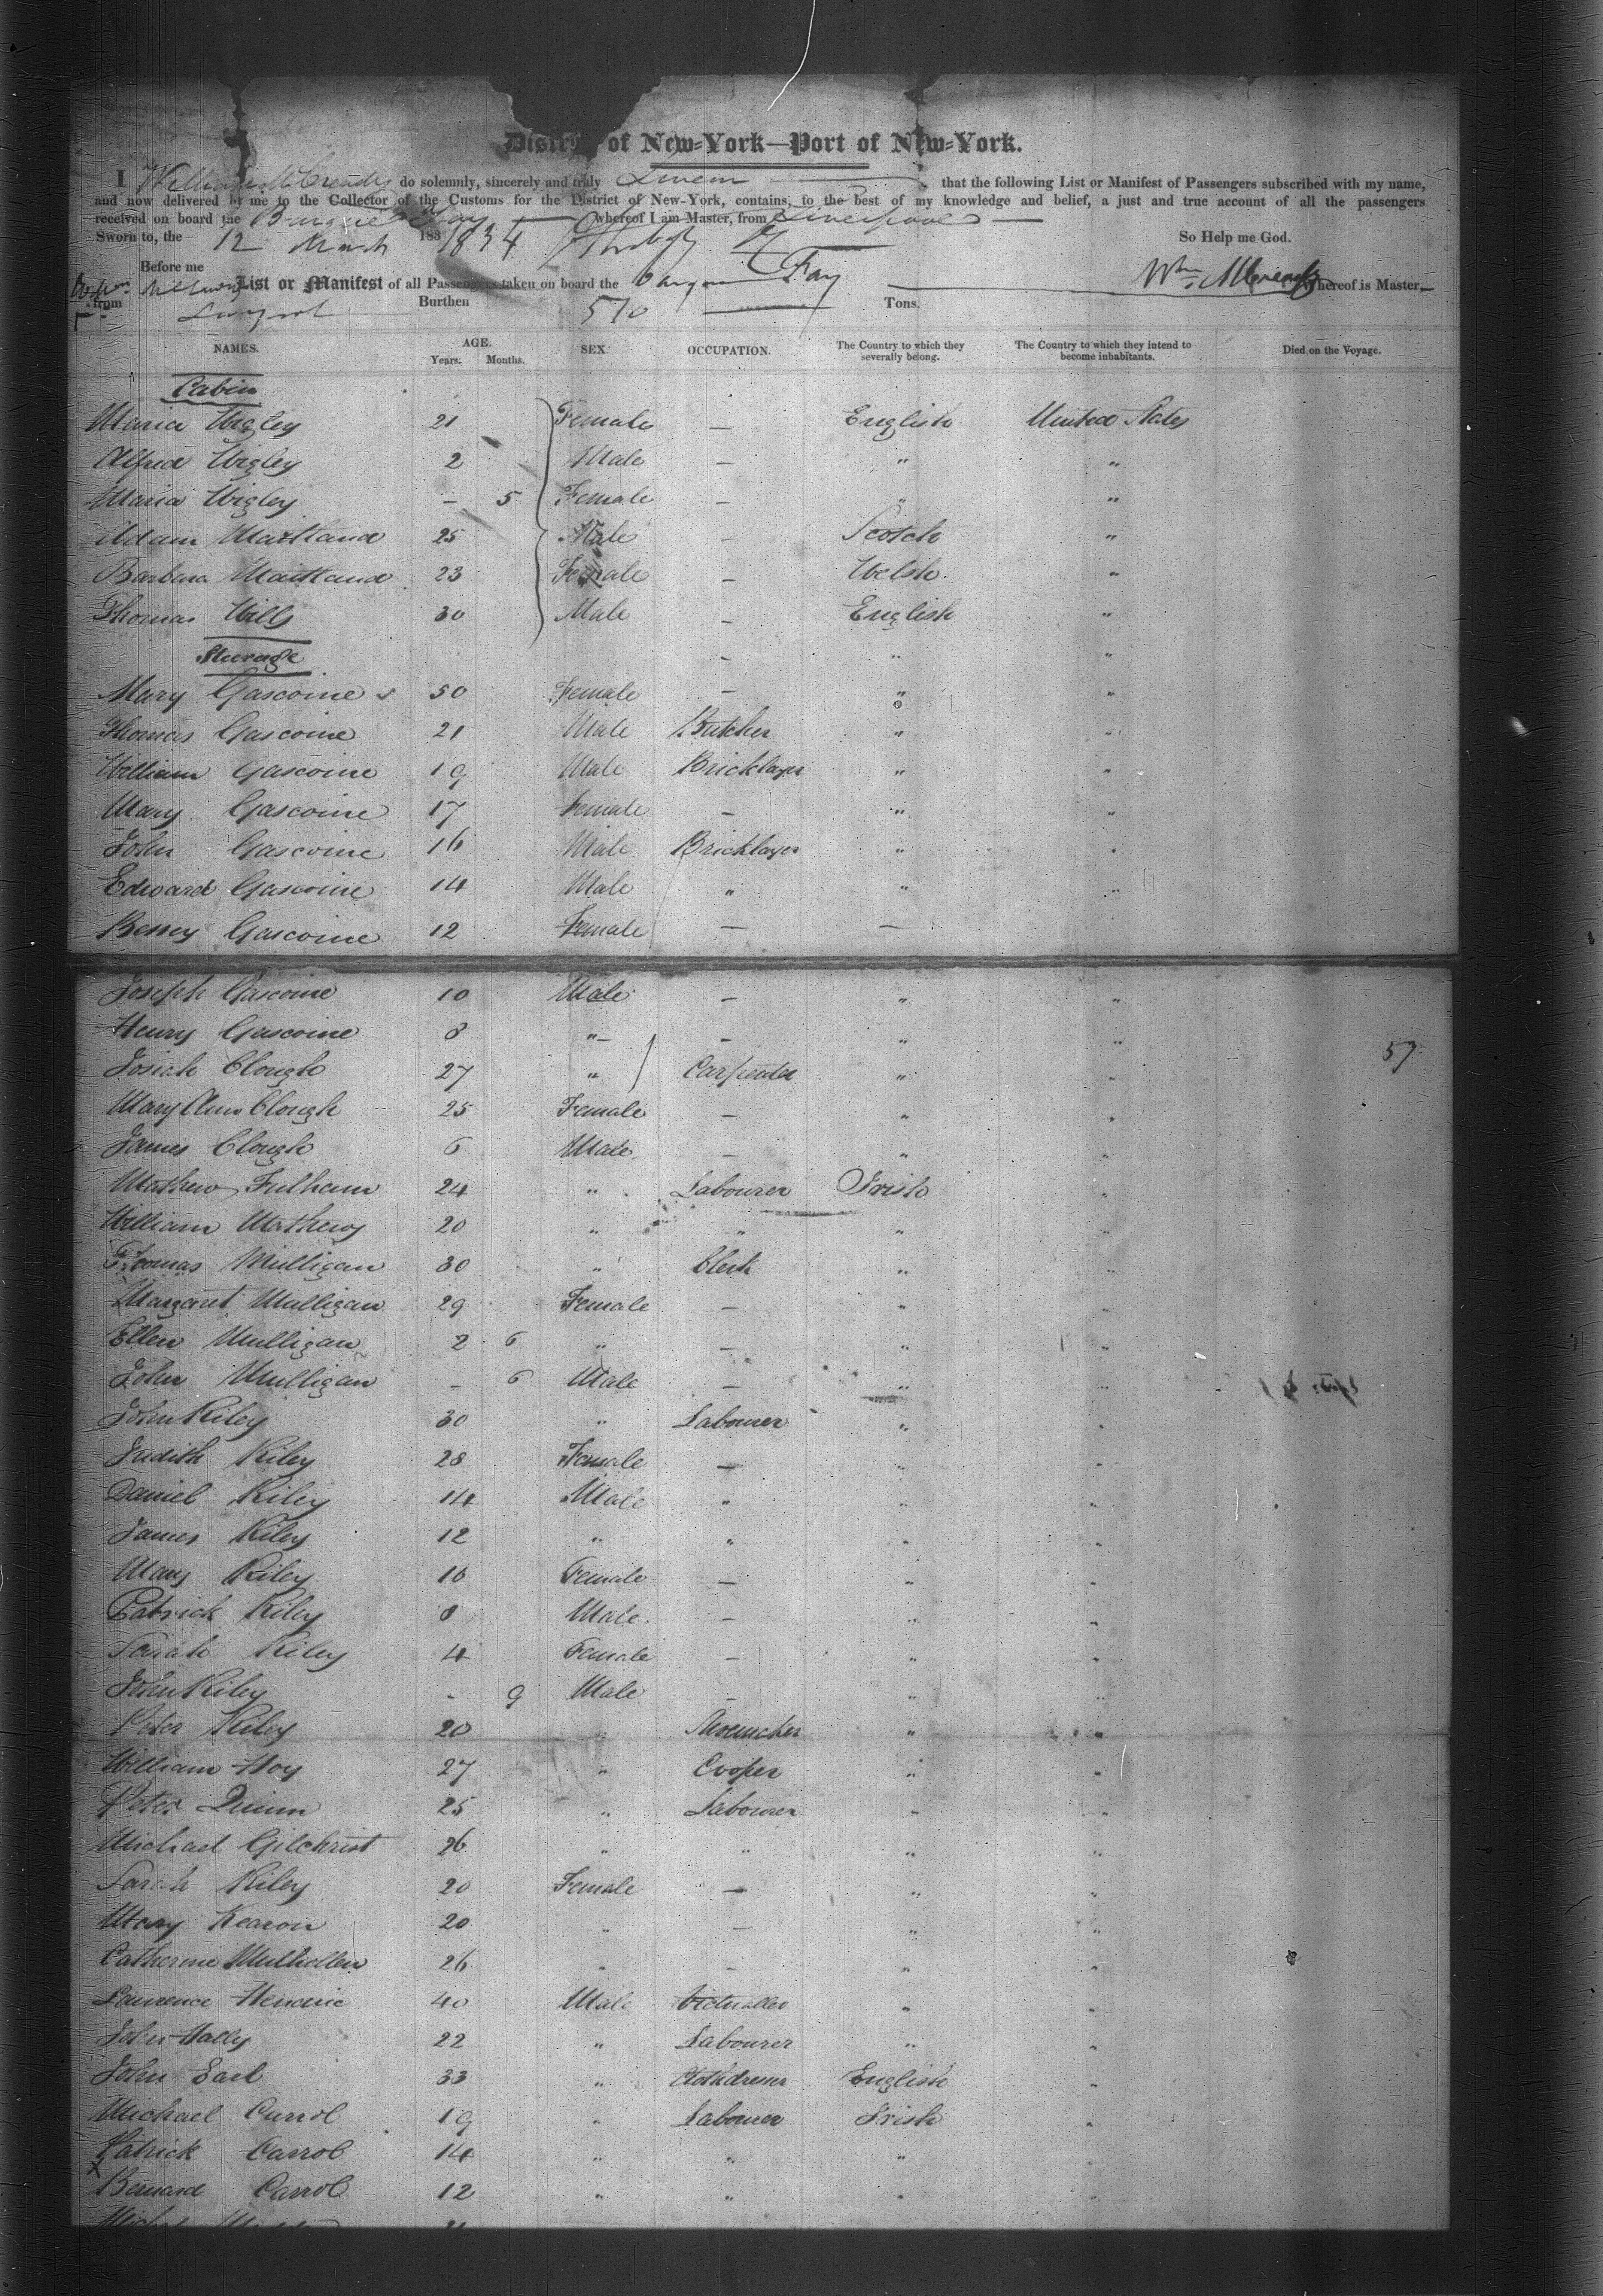 District of New-York—Port of New-York.
I William McCready do solemnly, sincerely and truly Swear that the following List or Manifest of Passengers subscribed with my name,
and now delivered by me to the Collector of the Customs for the District of New-York, contains, to the best of my knowledge and belief, a just and true account of all the passengers
received on board the Barque Fay whereof I am Master, from Liverpool
Sworn to, the 12 March 183 1834 So Help me God.
Before me Wm McCready
List or Manifest of all Passengers taken on board the barque Fay whereof is Master,
from Liverpool Burthen 570 Tons.
NAMES. AGE. Years. Months. SEX. OCCUPATION. The Country to which they severally belong. The Country to which they intend to become inhabitants. Died on the Voyage.
Cabin
Maria Wigley 21 Female — English United States
Alfred Wigley 2 Male — " "
Maria Wigley — 5 Female — " "
Adam Maitland 25 Male — Scotch "
Barbara Maitland 23 Female — Welsh "
Thomas Wills 30 Male — English "
Steerage — " "
Mary Gascoine 50 Female — " "
Thomas Gascoine 21 Male Butcher " "
William Gascoine 19 Male Bricklayer " "
Mary Gascoine 17 Female — " "
John Gascoine 16 Male Bricklayer " "
Edward Gascoine 14 Male " " "
Bessey Gascoine 12 Female — —
Joseph Gascoine 10 Male — " "
Henry Gascoine 8 " — " "
57
Josiah Clough 27 " Carpenter " "
Mary Ann Clough 25 Female — " "
James Clough 6 Male — " "
Mathew Fulham 24 " Labourer Irish "
William Mathews 20 " " " "
Thomas Mulligan 30 " Clerk " "
Margaret Mulligan 29 Female — " "
Ellen Mulligan 2 6 " — " "
John Mulligan — 6 Male — " "
John Riley 30 " Labourer " "
Judith Riley 28 Female — " "
Daniel Riley 14 Male " " "
James Riley 12 " " " "
Mary Riley 10 Female — " "
Patrick Riley 8 Male — " "
Sarah Riley 4 Female — " "
John Riley — 9 Male — " "
Peter Riley 20 " " "
William Hoy 27 " Cooper " "
Peter Quinn 25 " Labourer " "
Michael Gilchrist 26 " " " "
Sarah Riley 20 Female — " "
Mary Kearon 20 " — " "
Catherine Mulhollen 26 " — " "
Laurence 40 Male Victualler " "
John Hally 22 " Labourer " "
John Earl 33 " Clothdresser English "
Michael Carrol 19 " Labourer Irish "
Patrick Carrol 14 " " "
Bernard Carrol 12 " " " "